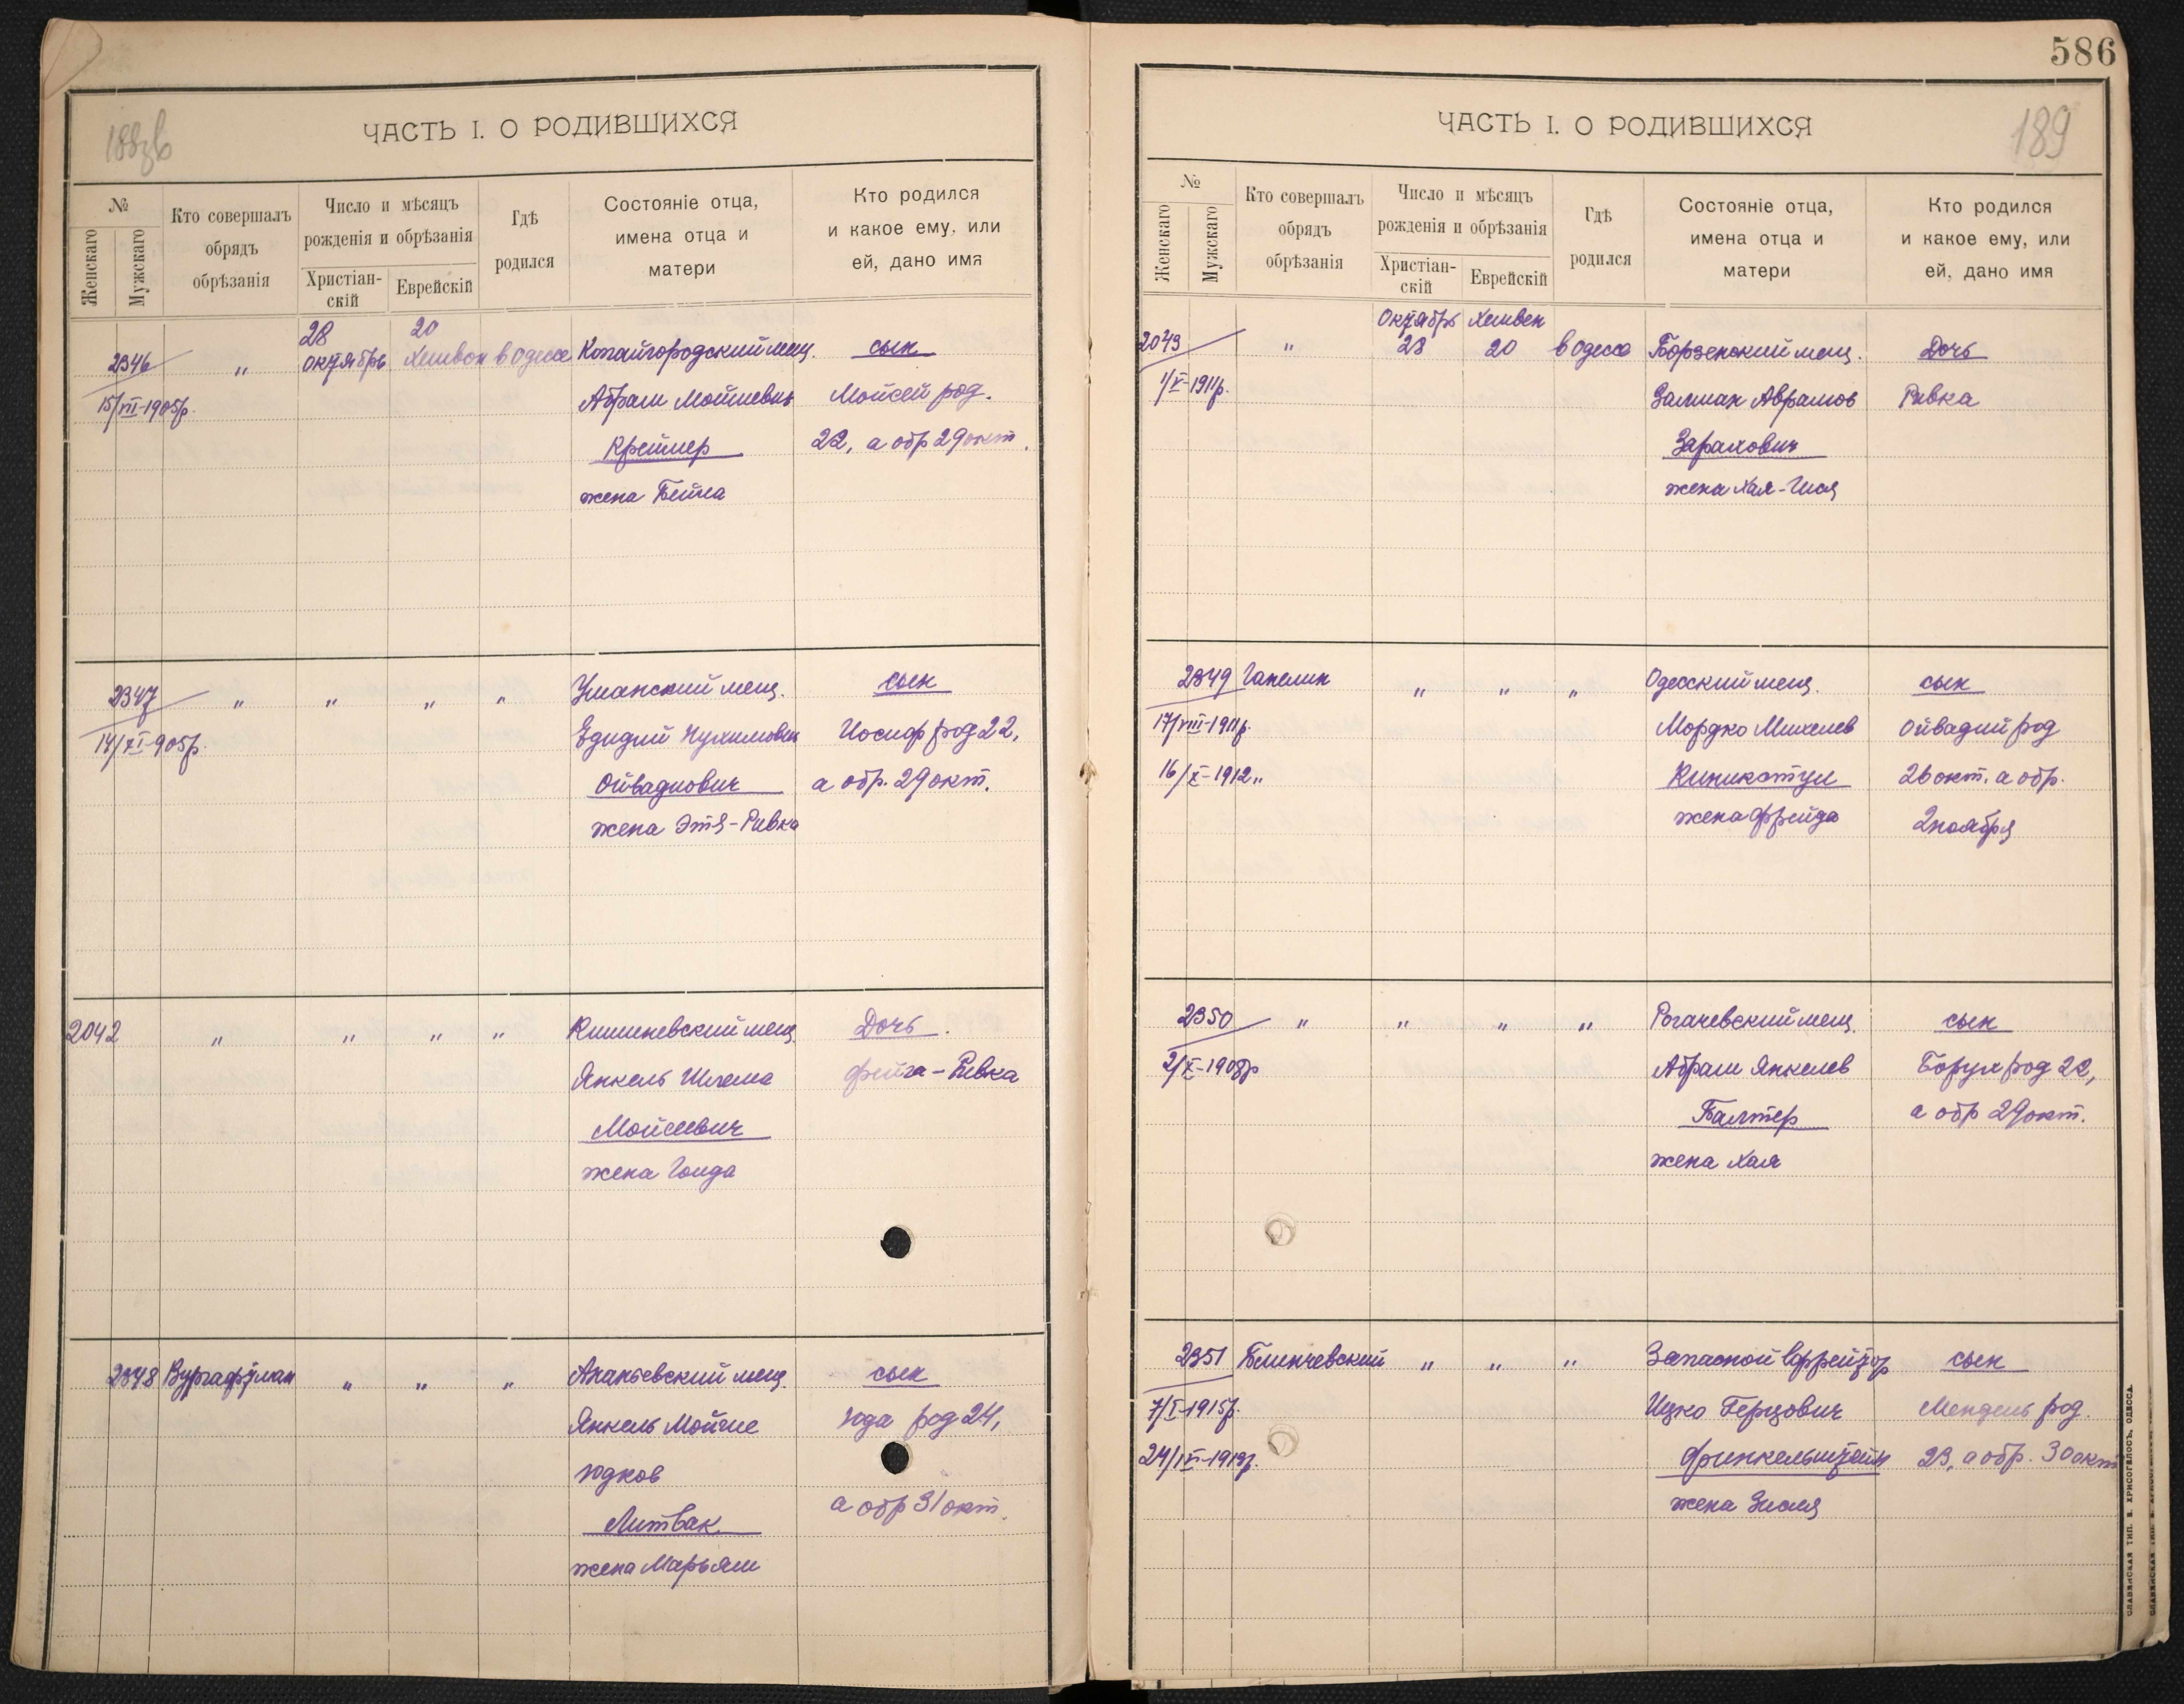 586
188зв
ЧАСТЬ I. О РОДИВШИХСЯ
№
Женскаго
Мужскаго
Кто совершалъ
обрядъ
обрѣзанія
Число и мѣсяцъ
рожденія и обрѣзанія
Христіан-
скій
Еврейскій
Гдѣ
родился
Состояніе отца,
имена отца и
матери
Кто родился
и какое ему, или
ей, дано имя
28 20
2346 " октябрь Хешвон в Одессе Копайгородский мещ. сын
15/VII-1905р. Абрам Мойшевич Мойсей род.
Креймер 22, а обр 29 окт.
жена Бейла
2347 " " " " Уманский мещ. сын
14/XI-905р. Едидий Нухимович Иосиф род 22,
Ойвадиович а обр. 29 окт.
жена Этя-Ривка
2042 " " " " Кишиневский мещ. Дочь.
Янкель Шлема Фейга-Ривка
Мойсеевич
жена Голда
2348 " " " Ананьевский мещ. сын
Янкель Мойше Юда род 24,
Юдков
Литвак а обр 31 окт.
жена Марьям
189
ЧАСТЬ I. О РОДИВШИХСЯ
№
Женскаго
Мужскаго
Кто совершалъ
обрядъ
обрѣзанія
Число и мѣсяцъ
рожденія и обрѣзанія
Христіан-
скій
Еврейскій
Гдѣ
родился
Состояніе отца,
имена отца и
матери
Кто родился
и какое ему, или
ей, дано имя
Октябрь Хешвен
2043 " 28 20 в Одессе Борзенский мещ. Дочь
1/V-1911р. Залман Аврамов Ривка
Зарахович
жена Хая-
2349 Гапелин " " " Одесский мещ. сын
17/VIII-1911р. Мордко Михелев Ойвадий род
16/X-1912 " 26 окт. а обр.
жена Фрейда 2 ноября
2350 " " " " Рогачевский мещ. сын
2/X-1908р Абрам Янкелев Борух род 22,
Балтер а обр 29 окт.
жена Хая
2351 Блинчевский " " " Запасной Ефрейтор сын
7/I-1915р. Ицко Герцович Мендель род.
Финкельштейн 23, а обр. 30 окт
жена Зисля
СЛАВЯНСКАЯ ТИП. В. ХРИСОГЕЛОСЪ, ОДЕССА.